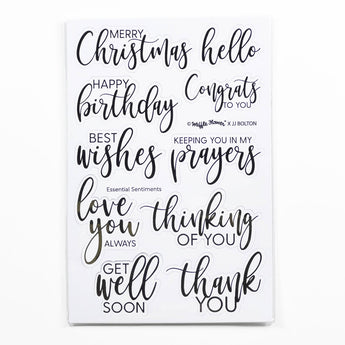 MERRY
Christmas hello
HAPPY
birthday
Congrats
TO YOU
X JJ BOLTON
BEST
wishes
KEEPING YOU IN MY
prayers
Essential Sentiments
love
you
ALWAYS
thinking
OF YOU
GET
well
SOON
thank
YOU